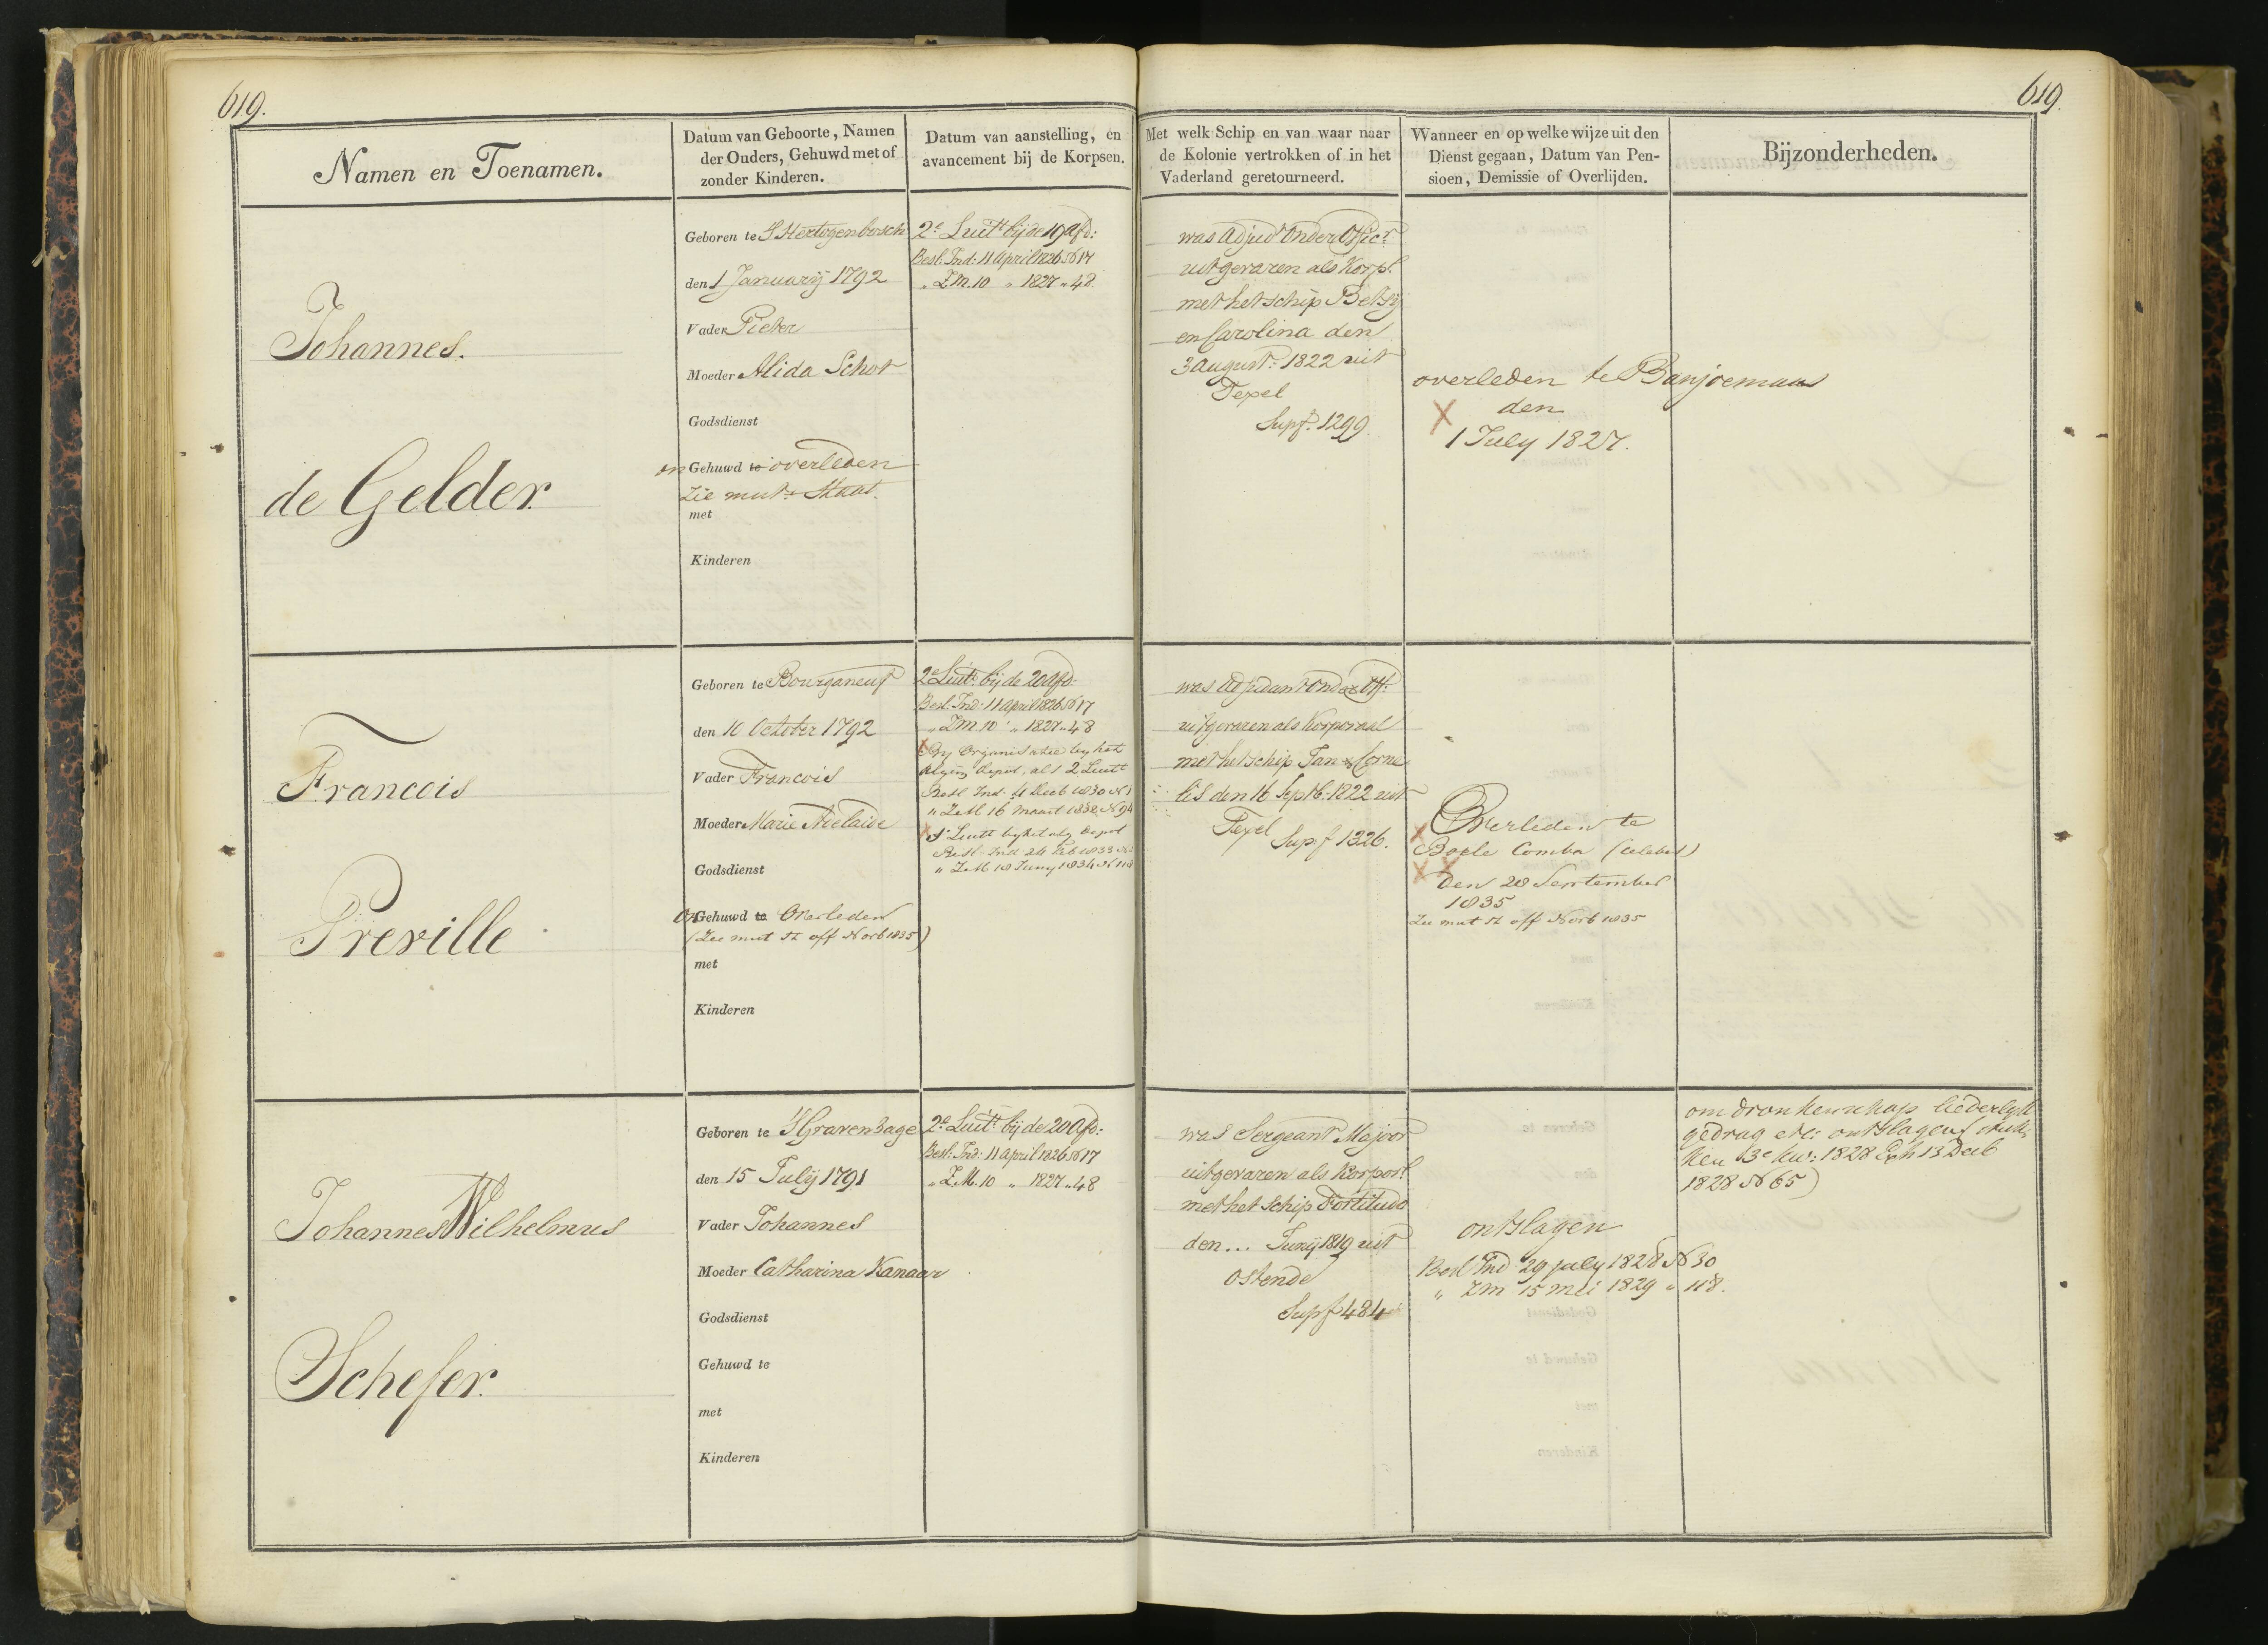 619.
619.
Namen en Toenamen.
Datum van Geboorte, Namen
der Ouders, Gehuwd met of
zonder Kinderen.
Datum van aanstelling, en
avancement bij de Korpsen.
Met welk Schip en van waar naar
de Kolonie vertrokken of in het
Vaderland geretourneerd.
Wanneer en op welke wijze uit den
Dienst gegaan, Datum van Pen-
sioen, Demissie of Overlijden.
Bijzonderheden.
Johannes.
de Gelder.
Geboren te S'Hertogenbosch
den 1 Januarij 1792
Vader Pieter
Moeder Alida Schot
Godsdienst
on Gehuwd te overleden
Zie mut. Staat.
met
Kinderen
2e Luitt bij de 19 Afd:
Besl. Ind: 11 April 1826 No 17
" Z.M. 10 " 1827 " 48.
was Adjud Onder Officr
uitgevaren als Korpl.
met het schip Betsij
en Carolina den
3 August: 1822 uit
Texel
Supf. 1299.
overleden te Banjoemaas
X den
1 July 1827.
Francois
Preville
Geboren te Bourganeuf
den 10 October 1792
Vader Francois
Moeder Marie Adelaide
Godsdienst
On Gehuwd te Overleden
(Zie mut St off Novb 1835)
met
Kinderen
2e Luitt bij de 20 Afd.
Besl. Ind: 11 April 1826 No 17
" Z.M. 10 " 1827 " 48
X By Organisatie by het
Algem depot, als 2 Luitt
Besl Ind: 4 Decb 1830 No 1
" Z.M 16 Maart 1832 No 94
X 1e Luitt by het alg depot
Besl Ind 24 Feb 1833 No
" Z.M 18 Juny 1834 No 118
was Adjudant Onder Off:
uitgevaren als Korporaal
met het schip Jan & Corne
lis den 16 Septb. 1822 uit
Texel
Sup.f 1326.
X Overleden te
Boele Comba (Celebes)
X X den 28 September
1835
Zie mut St off Novb 1835
Johannes Wilhelmus
Schefer.
Geboren te S'Gravenhage
den 15 Julij 1791
Vader Johannes
Moeder Catharina Kanaar
Godsdienst
Gehuwd te
met
Kinderen
2e Luitt bij de 20 Afd:
Besl. Ind: 11 April 1826 No 17
" Z.M. 10 " 1827 " 48
was Sergeant Majoor
uitgevaren als Korporl.
met het schip Fortitudo
den ... Junij 1819 uit
Ostende
Supf 484
ontslagen
Besl Ind 29 july 1828 No 30
" Zm 15 mei 1829 " 118.
om dronkenschap liederlyk
gedrag etc: ontslagen (stuk
ken 1828 Exh 13 Decb
1828 No 65)